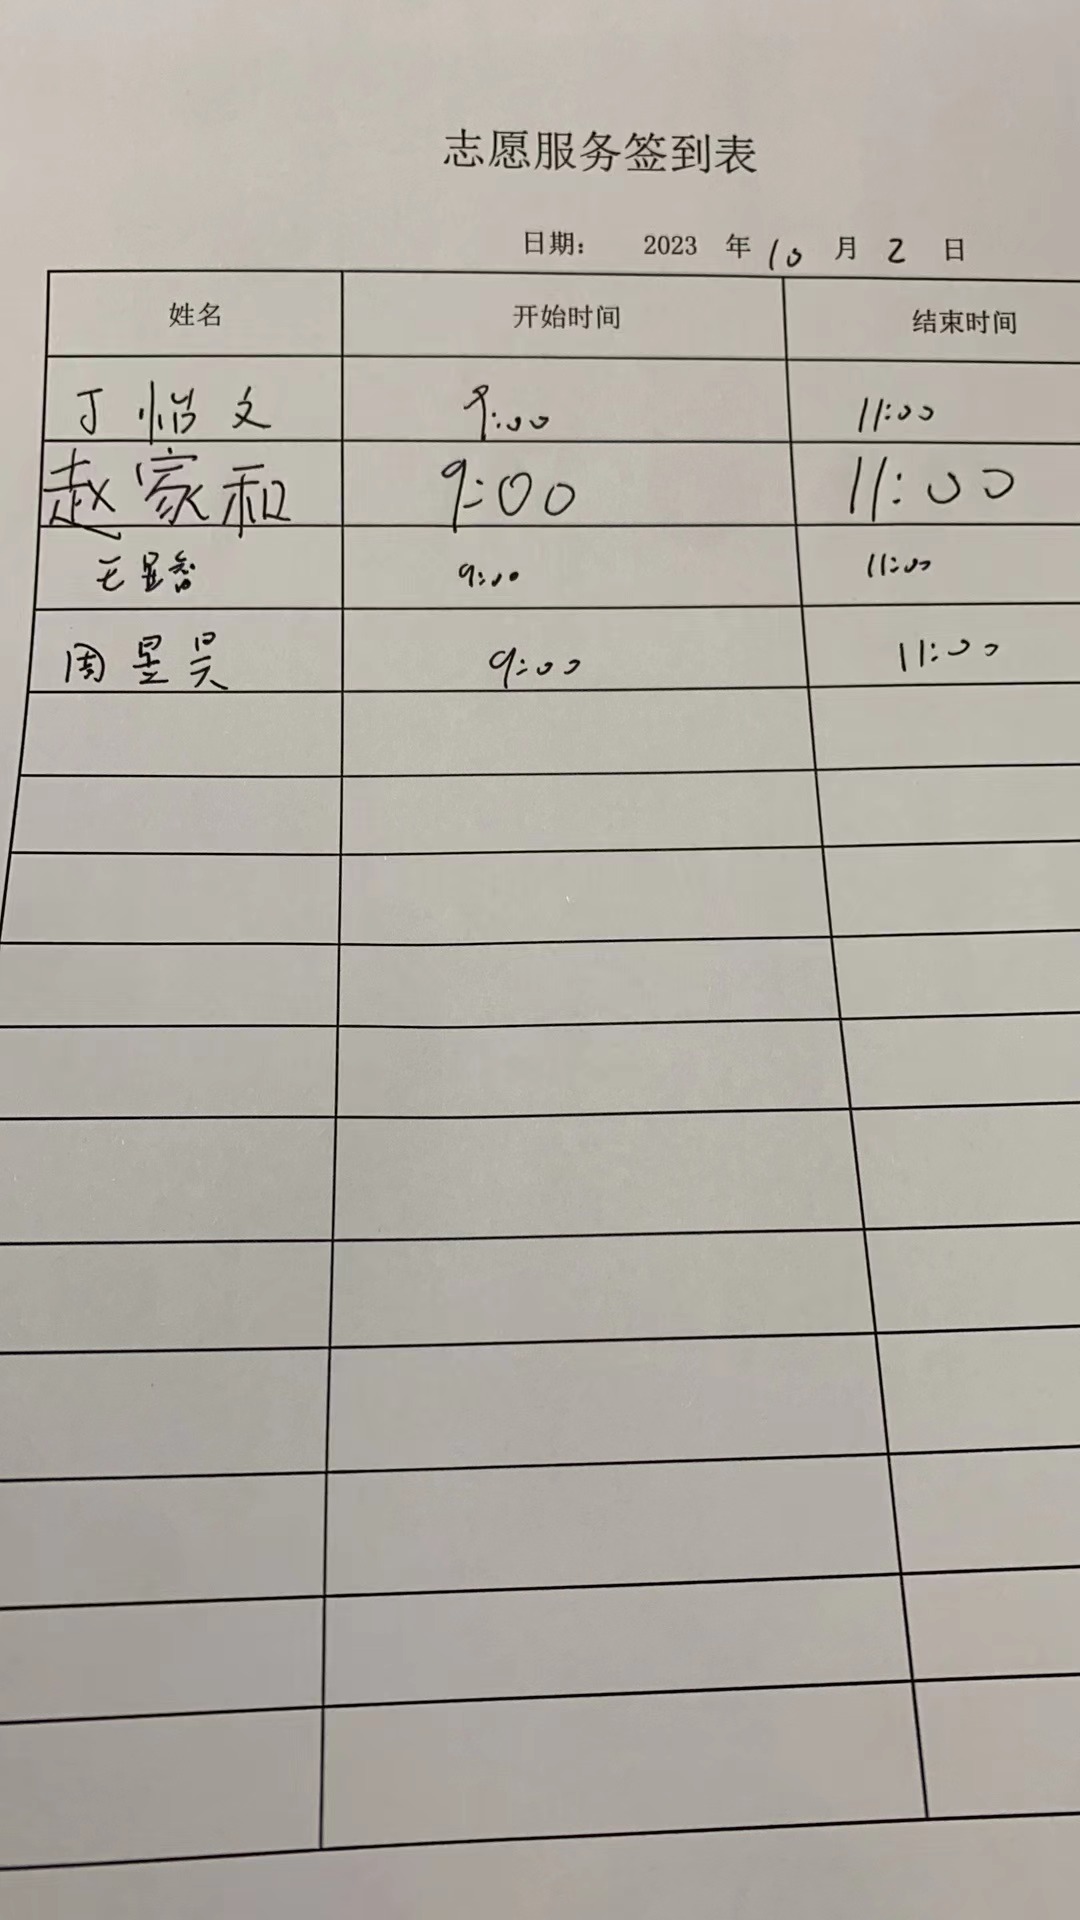 志愿服务签到表
日期： 2023 年 10 月 2 日
姓名 开始时间 结束时间
丁怡文 9:00 11:00
赵家和 9:00 11:00
王昱 9:00 11:00
周昱昊 9:00 11:00